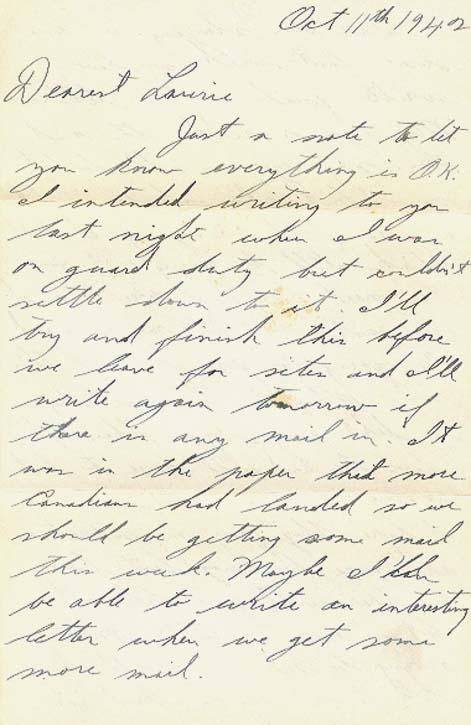 Oct 11th 1942
Dearest Laurie
Just a note to let
you know everything is O.K.
I intended writing to you
last night when I was
on guard duty but couldn't
settle down to it. I'll
try and finish this before
we leave for sites and I'll
write again tomorrow if
there is any mail in. It
was in the paper that more
Canadians had landed so we
should be getting some mail
this week. Maybe I'll
be able to write an interesting
letter when we get some
more mail.